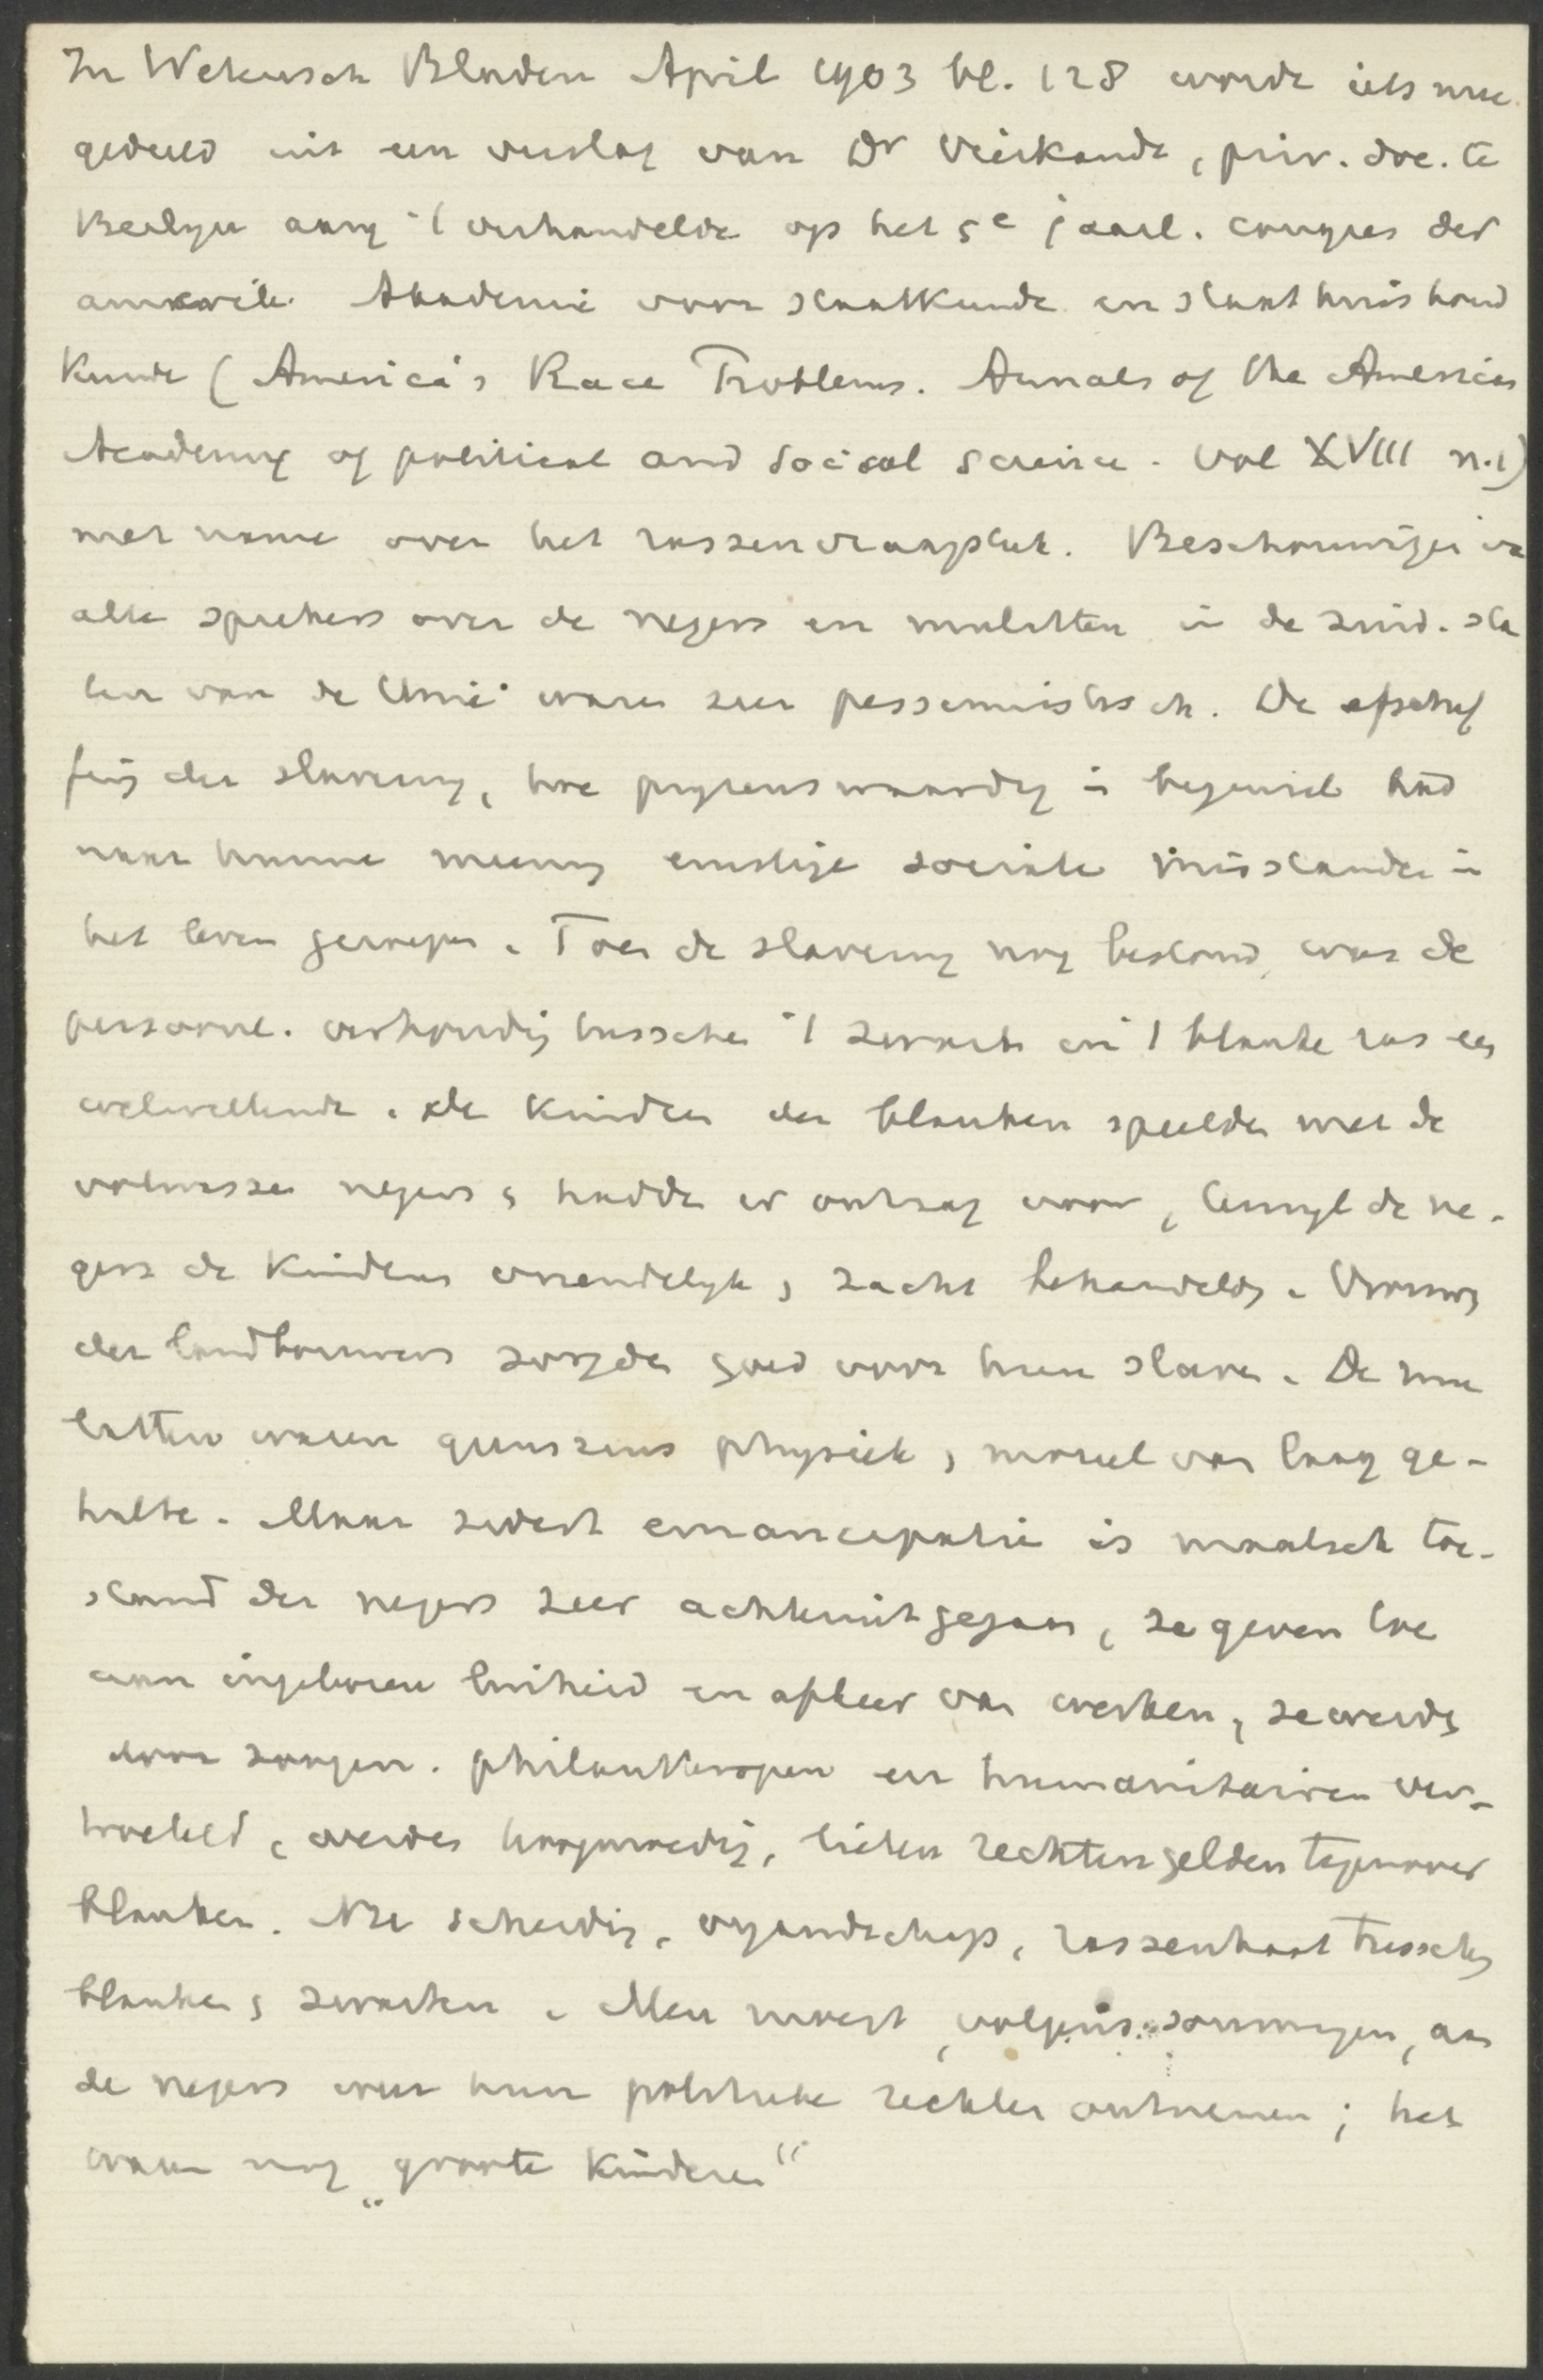 In Wetensch Bladen April 1903 bl. 128 wordt iets mee
gedeeld uit een verslag van Dr Vierkandt, priv. doc. te
Berlyn aang 't verhandelde op het 5e jaarl. congres der
amerik. Akademie voor staatkunde en staathuishoud
kunde (America's Race Problems. Annals of the American
Academy of political and Social Science. Vol XVIII n.1)
met name over het rassenvraagstuk. Beschouwingen van
alle sprekers over de negers en mulatten in de zuid. sta
ten van de Unie waren zeer pessimistisch. De afschaf
fing der slaverny, hoe pryzenswaardig in beginsel had
naar hunne meening ernstige sociale misstanden in
het leven geroepen. Toen de slaverny nog bestond, was de
persoonl. verhouding tusschen 't zwarte en 't blanke ras een
welwillende. De kinderen der blanken speelden met de
volwassen negers & hadden er ontzag voor, terwyl de ne-
gers de kinderen vriendelyk & zacht behandelden. Vrouwen
der landbouwers zorgden goed voor hun slaven. De mu
latten waren geenszins physiek & moreel van laag ge-
halte. Maar sedert emancipatie is maatsch toe-
stand der negers zeer achteruitgegaan, ze geven toe
aan ingeboren luiheid en afkeer van werken, ze werden
door zoogen. philanthropen en humanitairen ver-
troeteld, werden hoogmoedig, lieten rechten gelden tegenover
blanken. Nu scheiding, vyandschap, rassenhaat tusschen
blanken & zwarten. Men moest, volgens sommigen, aan
de negers weer hun politieke rechten ontnemen; het
waren nog „groote kinderen“